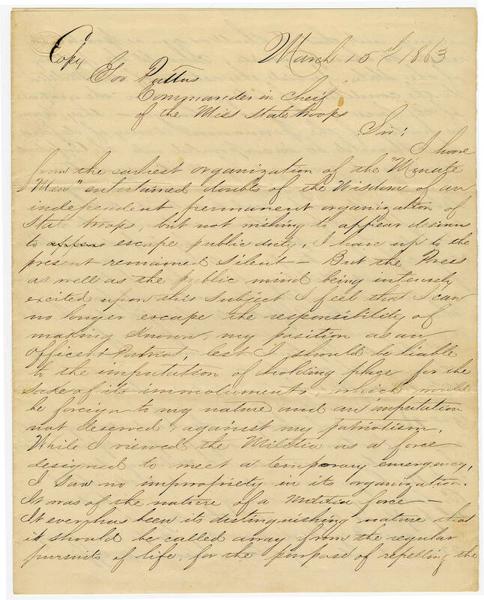 Copy March 15th 1863
Gov Pettus
Commander in Cheif
of the Miss State troops
Sir:
I have
from the earliest organization of the "Minute
Men" entertained doubts of the Wisdom of an
independent permanent organization of
State troops, but not wishing to appear desirous
to appear escape public duty, I have up to the
present remained silent— But the Press
as well as the public mind being intensely
excited upon this subject I feel that I can
no longer escape the responsibility of
making known, my position as an
officer & Patriot, lest I should be liable
to the imputation of holding place for the
sake of its immoluments which would
be foreign to my nature and an imputation
not deserved against my patriotism.
While I viewed the Militia as a force
designed to meet a temporary emergency,
I saw no impropriety in its organization.
It was of the nature of a Militia force—
It ever has been its destinguishing nature that
it should be called away from the regular
pursuits of life, for the purpose of repelling the